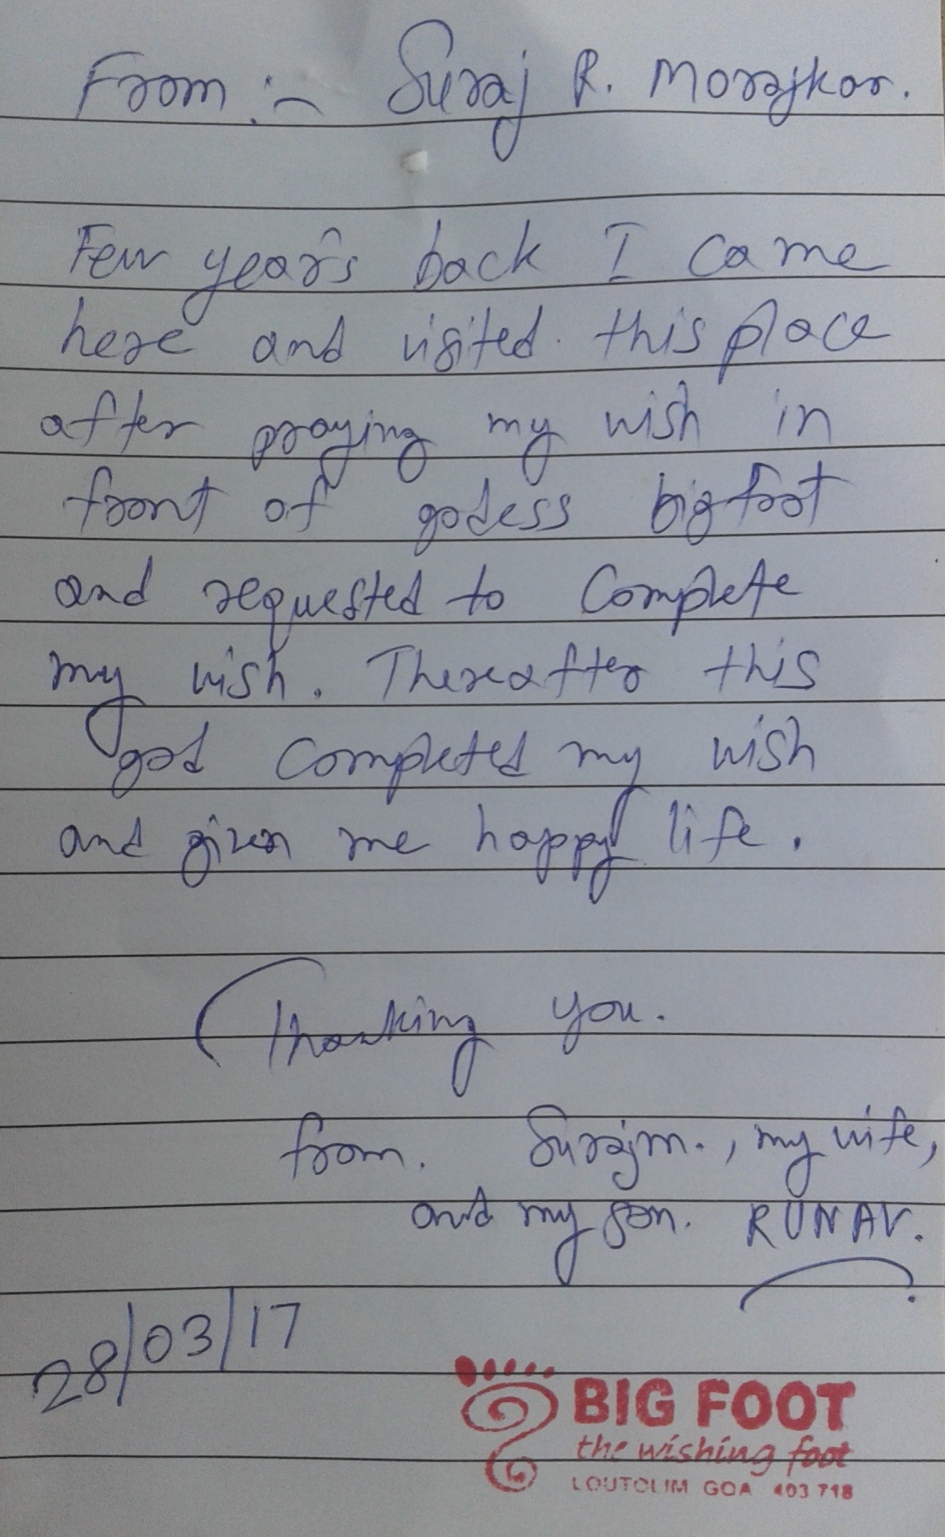 From :- Suraj R. Morajkar.
Few years back I came
here and visited. this place
after praying my wish in
front of godess bigfoot
and requested to Complete
my wish. Thereafter this
god completed my wish
and given me happy life.
Thanking you.
from. Surajm., my wife,
and my son. RUNAV.
28/03/17
BIG FOOT
the wishing foot
LOUTOLIM GOA 403 718